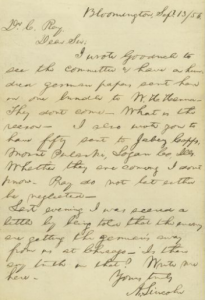 Bloomington, Sept. 13/58
Dr. C. Ray
Dear Sir,
I wrote to
see the committee & have a hundred
german papers sent here
in one bundle to
They dont come— What is the
reason— I also wrote you to
have fifty sent to Jabez Capps,
Mount Pulaski, Logan Co Ills
Whether they are coming I dont
know. Ray do not let either
be neglected—
Last evening I was scared a
little by being told that the enemy
are getting the germans away
from us at Chicago— Is there
any truth in that? Write me
here.
Yours truly
A. Lincoln